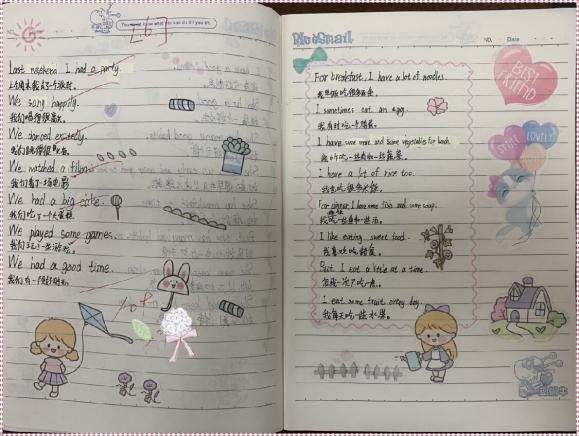 [67]
Last weekend I had a party.
上个周末我有一个派对.
We sang happily.
我们唱得很高兴.
We danced excitedly.
We watched a film.
我们看了一场电影
We had a big cake.
我们吃了一个大蛋糕
We played some games.
我们玩了一些游戏.
We had a good time.
BlueSnail
NO. Date
For breakfast, I have a lot of noodles.
I sometimes eat an egg.
我有时吃一个鸡蛋.
I have some meat and some vegetables for lunch.
I have a lot of rice too.
我也吃很多米饭
For dinner I have some fish and some soup.
I like eating sweet food.
我喜欢吃甜食.
But I eat a little at a time.
但我一次只吃一点.
I eat some fruit every day.
我每天吃一些水果.
BEST FRIEND
LOVELY